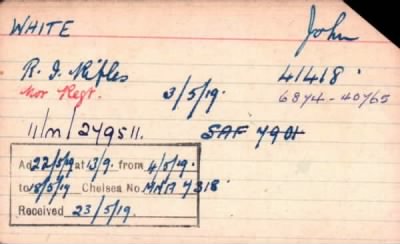 WHITE John
R. I. Rifles 41418
Nor Regt. 3/5/19. 6874-40765
11/M/279511. SAF 7901
Ad 22/5/19 at 13/9. from 4/5/19.
to 18/5/19 Chelsea No. MNA 7318
Received 23/5/19.